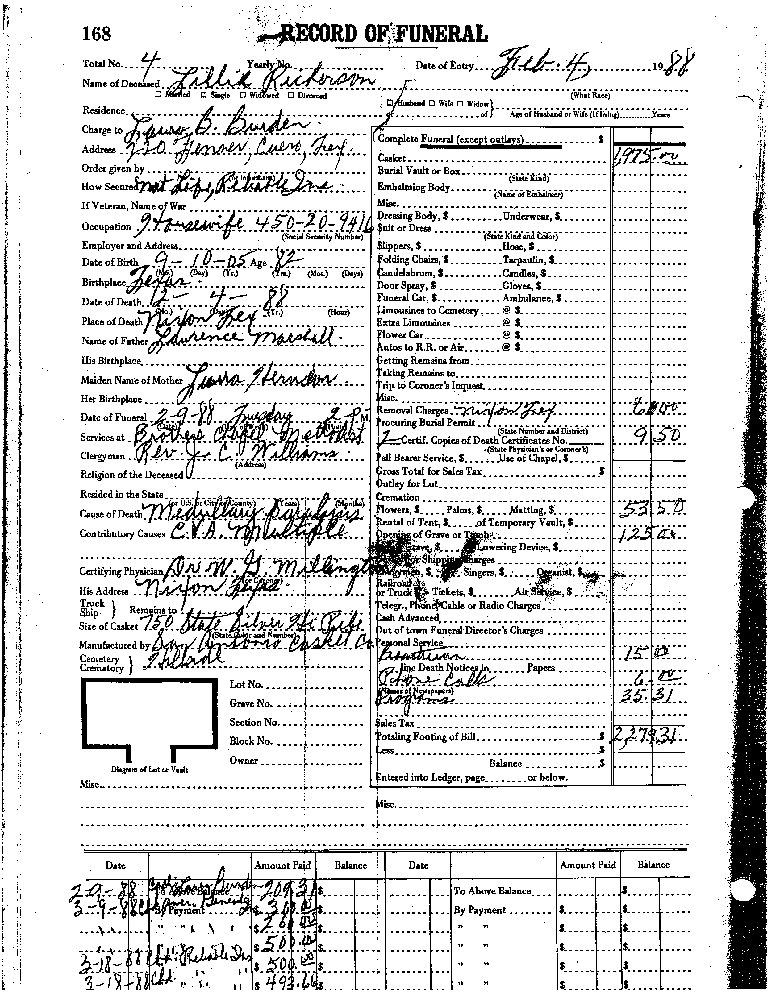 168 RECORD OF FUNERAL
Total No. 4 Yearly No. Date of Entry Feb. 4, 1988
Name of Deceased Lillie Richerson
Married Single Widowed Divorced (What Race)
Husband Wife Widow of Age of Husband or Wife (If living) Years
Residence
Charge to B. Burden
Address Cuero, Tex.
Order given by
How Secured Nat. Life, Reliable Ins.
If Veteran, Name of War
Occupation Housewife 450-20-9416
(Social Security Number)
Employer and Address
Date of Birth 9-10-05 Age 82
(Mo.) (Day) (Yr.) (Yrs.) (Mos.) (Days)
Birthplace Texas
Date of Death 12- 4- 88
(Hour)
Place of Death Nixon Tex
Name of Father Lawrence Marshall
His Birthplace
Maiden Name of Mother Herndon
Her Birthplace
Date of Funeral 2-9-88 Tuesday 2 P.M.
Services at Brothers Chapel Methodist
Clergyman Rev. Jr. C. Williams
(Address)
Religion of the Deceased
Resided in the State
Cause of Death Medullary Paralysis
Contributory Causes C.V.A. Multiple
Certifying Physician Dr. W. G. Millington
His Address Nixon Texas
Truck Ship } Remains to
Size of Casket 750 State Silver
(State Color and Number)
Manufactured by San Antonio Casket Co
Cemetery Crematory } Hillside
Lot No.
Grave No.
Section No.
Block No.
Owner
Diagram of Lot or Vault
Misc.
Complete Funeral (except outlays) $
Casket 1,975.00
Burial Vault or Box
(State Kind)
Embalming Body
(Name of Embalmer)
Misc.
Dressing Body, $ Underwear, $
Suit or Dress
(State Kind and Color)
Slippers, $ Hose, $
Folding Chairs, $ Tarpaulin, $
Candelabrum, $ Candles, $
Door Spray, $ Gloves, $
Funeral Car, $ Ambulance, $
Limousines to Cemetery @ $
Extra Limousines @ $
Flower Car @ $
Autos to R.R. or Air @ $
Getting Remains from
Taking Remains to
Trip to Coroner's Inquest
Misc.
Removal Charges Nixon Tex 60.00
Procuring Burial Permit
(State Number and District)
Certif. Copies of Death Certificates No. 9.50
(State Physician's or Coroner's)
Pall Bearer Service, $ Use of Chapel, $
Gross Total for Sales Tax $
Outlay for Lot
Cremation
Flowers, $ Palms, $ Matting, $ 53.50
Rental of Tent, $ of Temporary Vault, $
Opening of Grave or Tomb 125.00
Lowering Device, $
or Shipping Charges
Singers, $ Organist, $
Railroad or Truck Tickets, $ Air Service, $
Telegr., Phone, Cable or Radio Charges
Cash Advanced
Out of town Funeral Director's Charges
Personal Service
15.00
line Death Notices in Papers
Phone Calls 6.00
(Names of Newspapers)
Programs 35.31
Sales Tax
Totaling Footing of Bill $ 2,279.31
Less $
Balance $
Entered into Ledger, page or below.
Misc.
Date Amount Paid Balance Date Amount Paid Balance
2-9-88 Burden 209.31 $ To Above Balance $
3-9-88 By Payment $ $ By Payment $ $
$ $ " " $ $
$ 500.00 $ " " $ $
3-18-88 Reliable Ins $ 500.00 $ " " $ $
3-18-88 $ 493.60 $ " " $ $